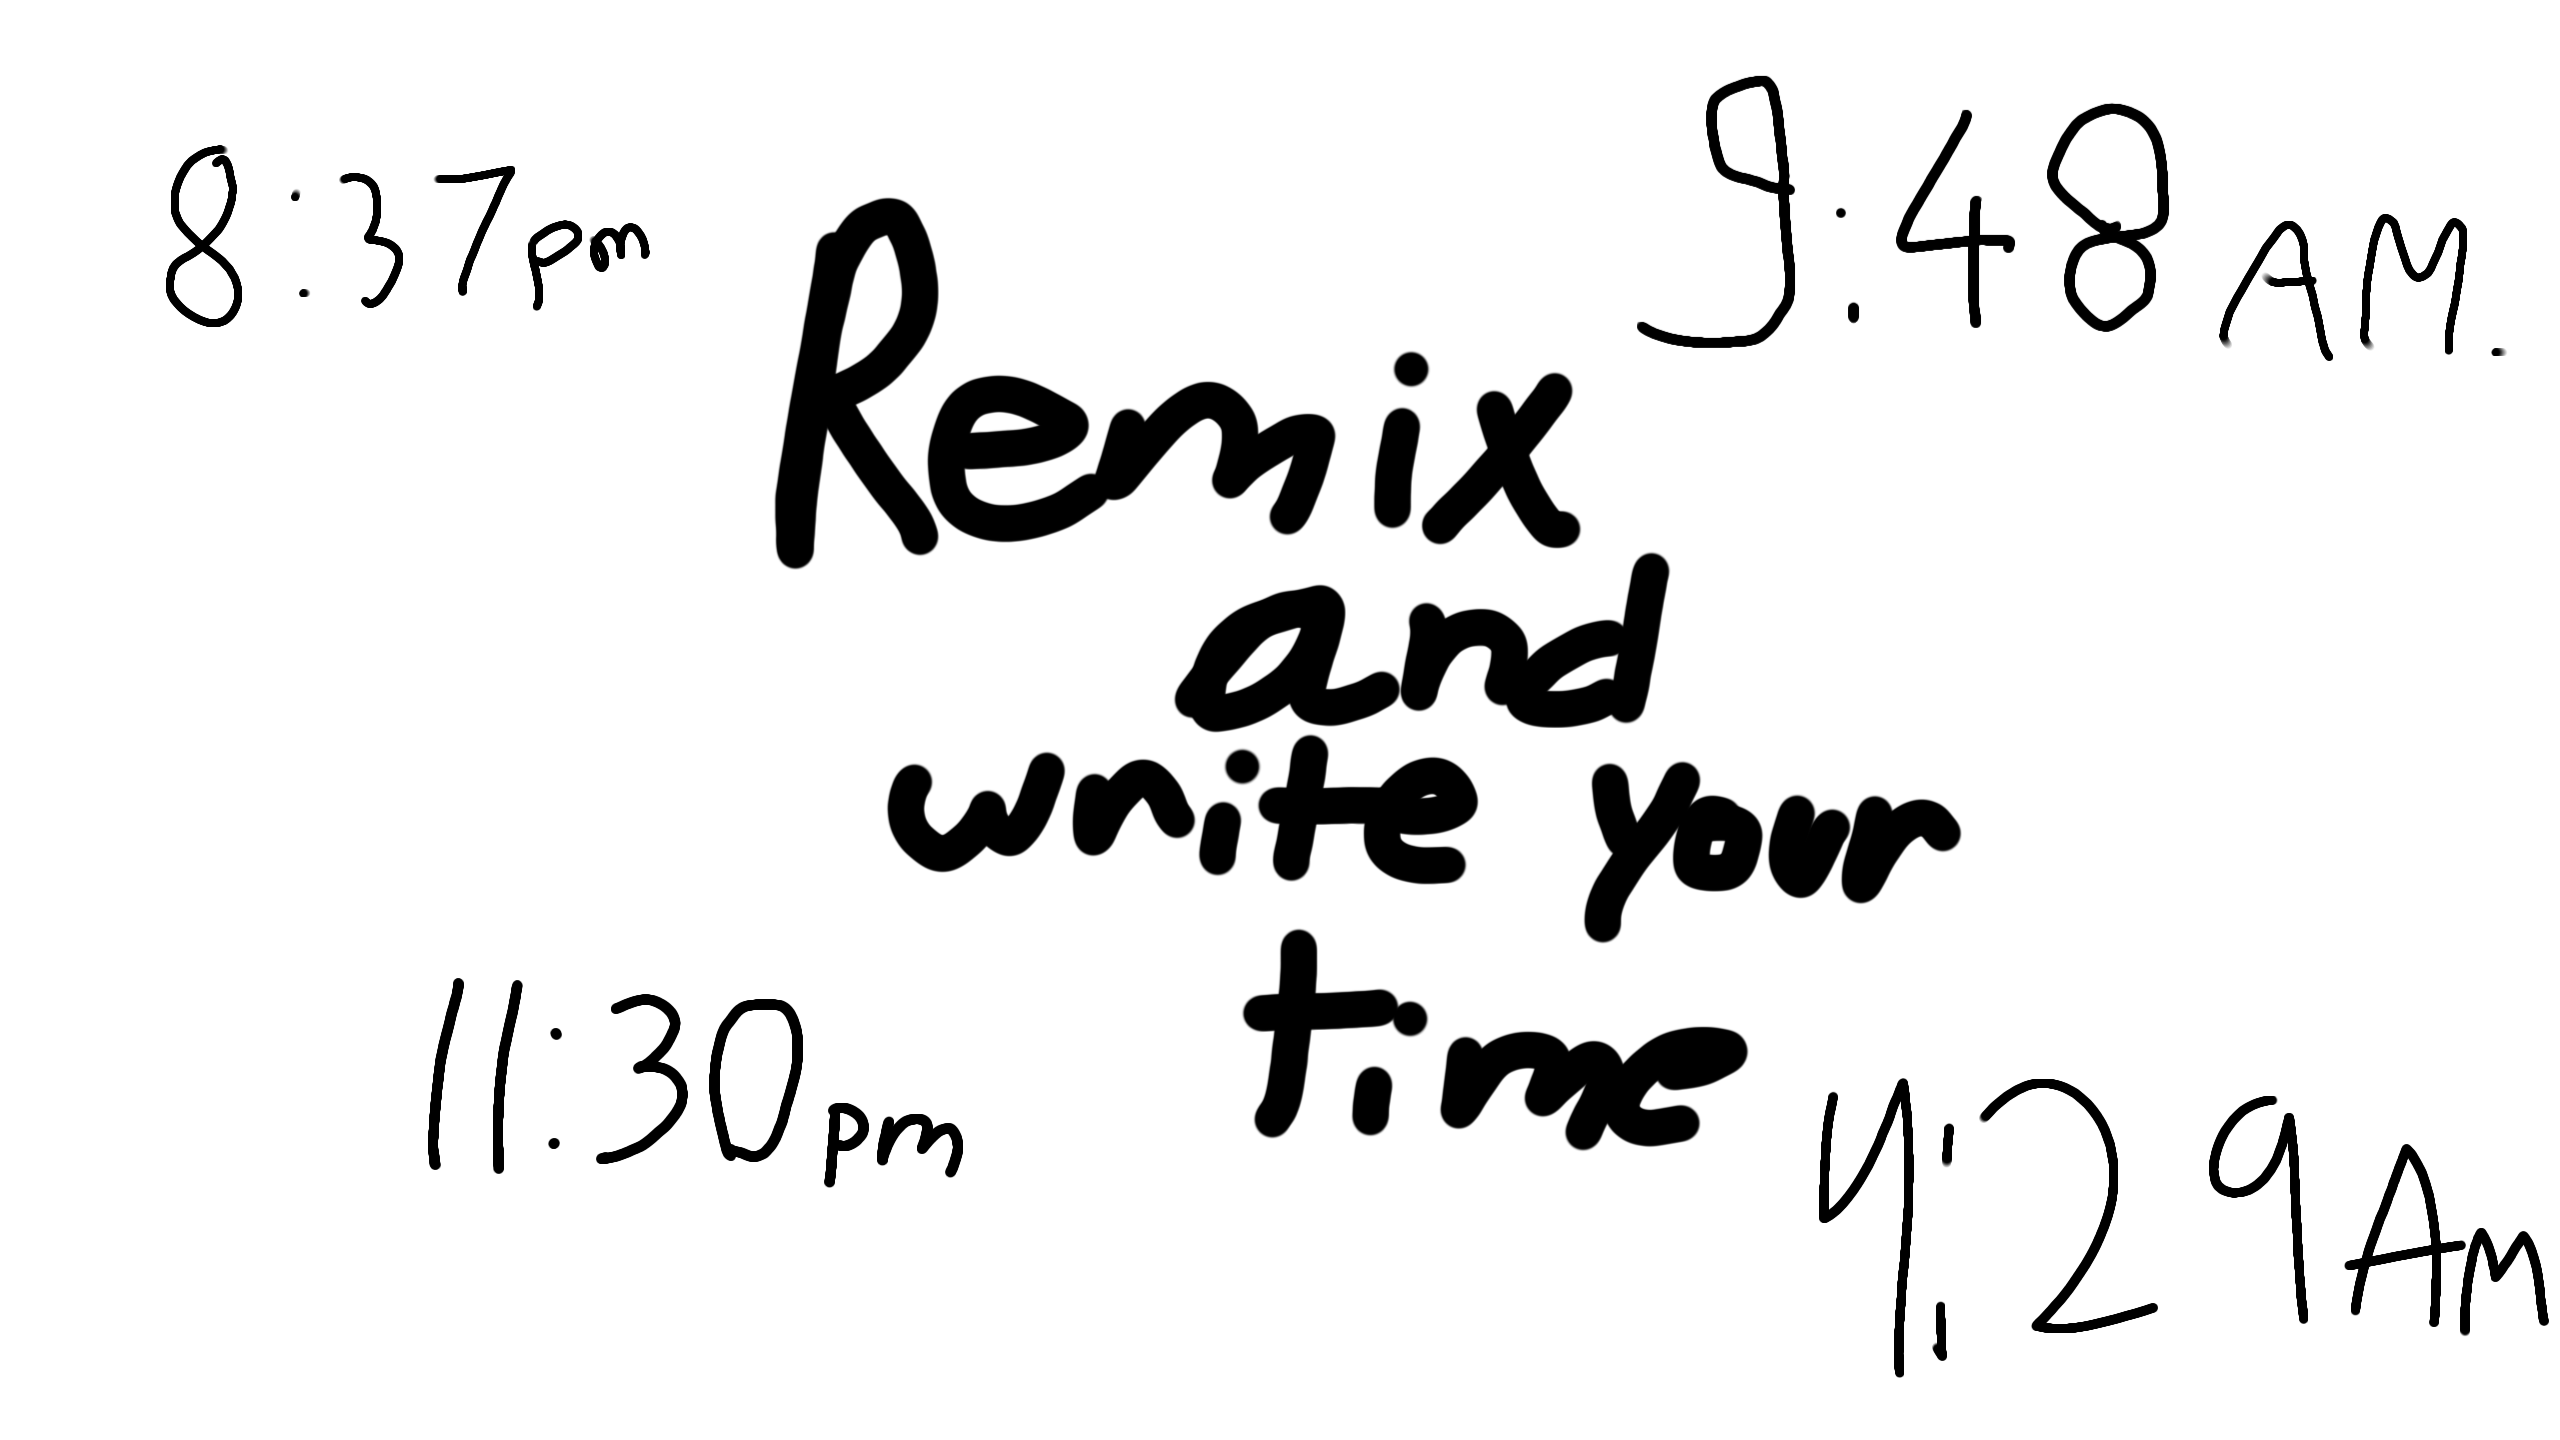 8:37pm
9:48 AM.
Remix
and
write your
time
11:30pm
4:29 AM